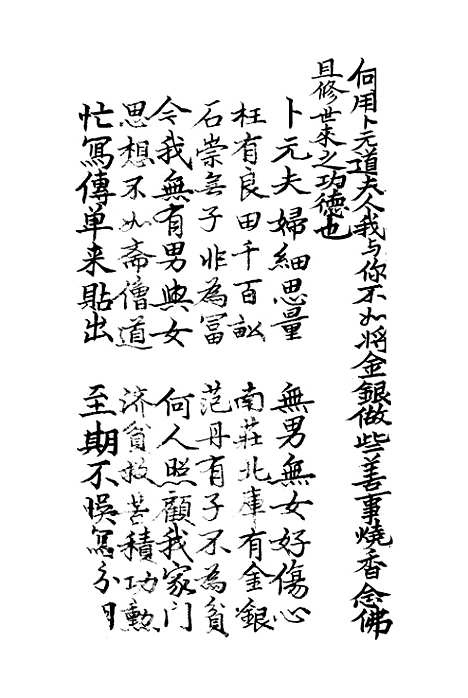 何用卜元道夫人我与你不如將金銀做些善事燒香念佛
且修世來之功德也
卜元夫婦細思量 無男無女好傷心
枉有良田千百畝 南莊北庫有金銀
石崇無子非為冨 范丹有子不為貧
令我無有男與女 何人照顧我家门
思想不如斋僧道 济貧救苦積功勲
忙寫傳单来貼出 至期不悞寫分明